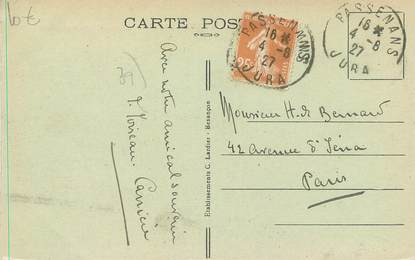 10€
CARTE POS
PASSENANS
16 *
4 -8
27
JURA
PASSENANS
16 *
4 -8
27
JURA
25
Avec notre
amical souvenir
Monsieur H. de Bernard
42 Avenue d'Iéna
Paris
Etablissements C. Lardier - Besançon